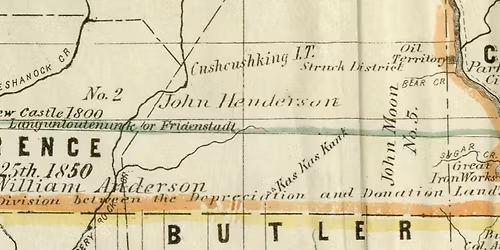 Cushcushking I.T.
Oil
Territory
Struck District
C
ESHANOCK CR
No. 2
John Henderson
BEAR CR.
New Castle 1800
Languntoutenunk for Fridenstadt
John Moon
No. 5.
RENCE
25th. 1850
Kas Kas Kunk
SUGAR CR.
Great
Iron Works
William Anderson
Division between the Depreciation and Donation Land
BUTLER